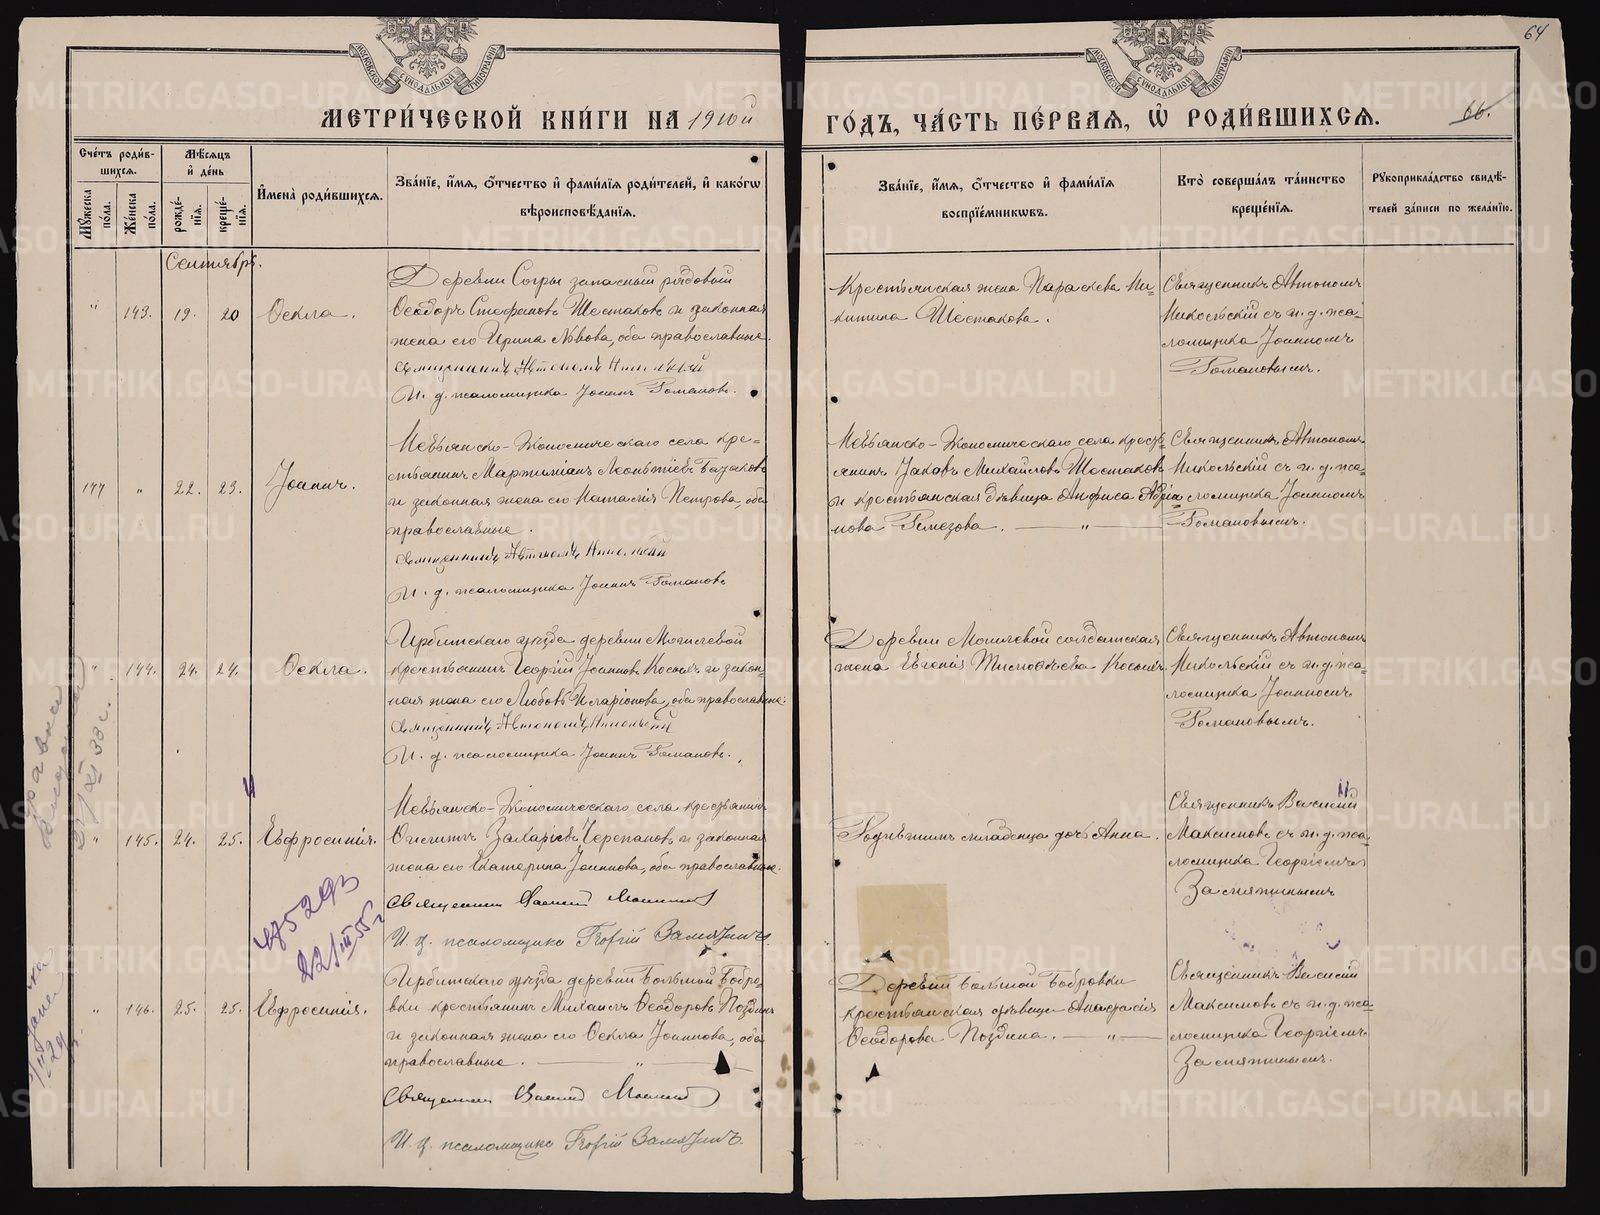 64
МОСКОВСКОЙ СѴНОДАЛЬНОЙ ТИПОГРАФІИ
МОСКОВСКОЙ СѴНОДАЛЬНОЙ ТИПОГРАФІИ
МЕТРИ́ЧЕСКОЙ КНИ́ГИ НА 1910й
ГО́ДЪ, ЧА́СТЬ ПЕ́РВАѦ, Ѡ҆ РОДИ́ВШИХСѦ.
66.
Сче́тъ роди́в-
шихсѧ.
Мѣ́сѧцъ
и҆ де́нь
Мꙋ́жеска
по́ла.
Же́нска
по́ла.
рожде́-
нїѧ.
креще́-
нїѧ.
И҆мена̀ роди́вшихсѧ.
Зва́нїе, и҆́мѧ, ѻ҆́тчество и҆ фами́лїѧ роди́телей, и҆ како́гѡ
вѣроисповѣ́данїѧ.
Зва́нїе, и҆́мѧ, ѻ҆́тчество и҆ фами́лїѧ
воспрїе́мникѡвъ.
Кто̀ соверша́лъ та́инство
креще́нїѧ.
Рꙋкоприкла́дство свидѣ́-
телей за́писи по жела́нїю.
Сентябрь.
" 143. 19. 20 Ѳекла.
Деревни Согры запасный рядовый
Ѳеодоръ Стефановъ Шестаковъ и законная
жена его Ирина Львова, оба православные.
Священникъ Автономъ Никольскій
И. д. псаломщика Іоаннъ Романовъ.
Крестьянская жена Параскева Ни-
китина Шестакова.
Священникъ Автономъ
Никольскій съ и. д. пса-
ломщика Іоанномъ
Романовымъ.
144 " 22. 23. Іоаннъ.
Невьянско-Экономическаго села кре-
стьянинъ Мартиніанъ Леонтіевъ
и законная жена его Наталія Петрова, оба
православные.
Священникъ Автономъ Никольскій
И. д. псаломщика Іоаннъ Романовъ
Невьянско-Экономическаго села кресть-
янинъ Іаковъ Михайловъ Шестаковъ
и крестьянская дѣвица Анфиса Адріа-
нова Ремезова. — " —
Священникъ Автономъ
Никольскій съ и. д. пса-
ломщика Іоанномъ
Романовымъ.
" 144. 24. 24. Ѳекла.
Ирбитскаго уѣзда деревни Могилевой
крестьянинъ Георгій Іоанновъ Косыхъ и закон-
ная жена его Любовь Иларіонова, оба православные.
Священникъ Автономъ Никольскій
И. д. псаломщика Іоаннъ Романовъ.
Деревни Могилевой солдатская
жена Евгенія Тимоѳеева Косыхъ.
Священникъ Автономъ
Никольскій съ и. д. пса-
ломщика Іоанномъ
Романовымъ.
" 145. 24. 25. Евфросинія.
Невьянско-Экономическаго села крестьянинъ
Захаріевъ Черепановъ и законная
жена его Екатерина Іоаннова, оба православные.
Священникъ Василій Максимовъ
И. д. псаломщика Георгій Замятинъ
дочь Анна.
Священникъ Василій
Максимовъ съ и. д. пса-
ломщика Георгіемъ
Замятинымъ
475293
22/III 55 г
" 146. 25. 25. Евфросинія.
Ирбитскаго уѣзда деревни Большой Бобро-
вки крестьянинъ Михаилъ Ѳеодоровъ Поздинъ
и законная жена его Ѳекла Іоаннова, оба
православные. — " —
Священникъ Василій Максимовъ
И. д. псаломщика Георгій Замятинъ.
Деревни Большой Бобровки
крестьянская дѣвица Анастасія
Ѳеодорова Поздина. — " —
Священникъ Василій
Максимовъ съ и. д. пса-
ломщика Георгіемъ
Замятинымъ.
METRIKI.GASO-URAL.RU